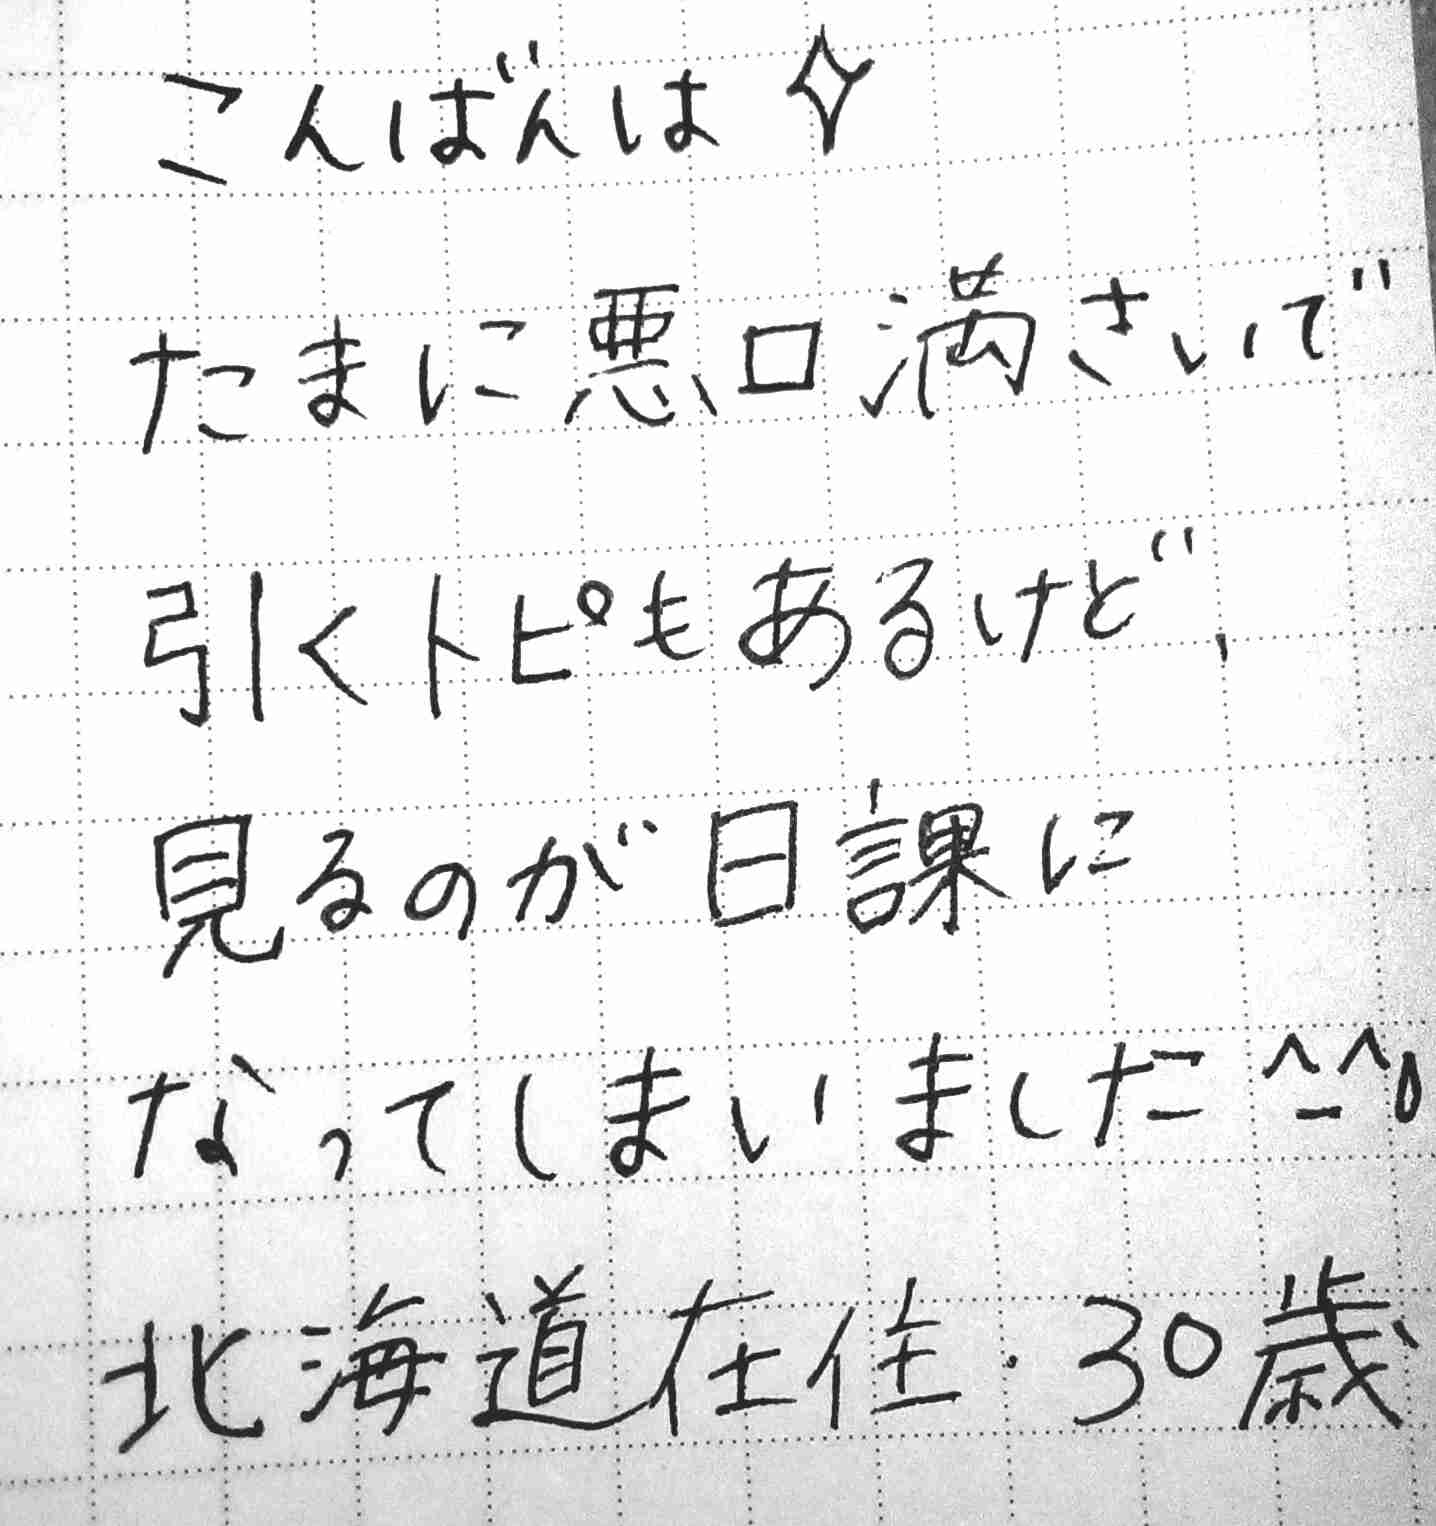 こんばんは✧
たまに悪口満さいで
引くトピもあるけど、
見るのが日課に
なってしまいました^_^;
北海道在住・30歳